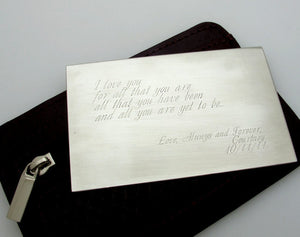 I love you
for all that you are
all that you have been
and all you are yet to be...
Love, Always and Forever,
Courtney
10/11/11